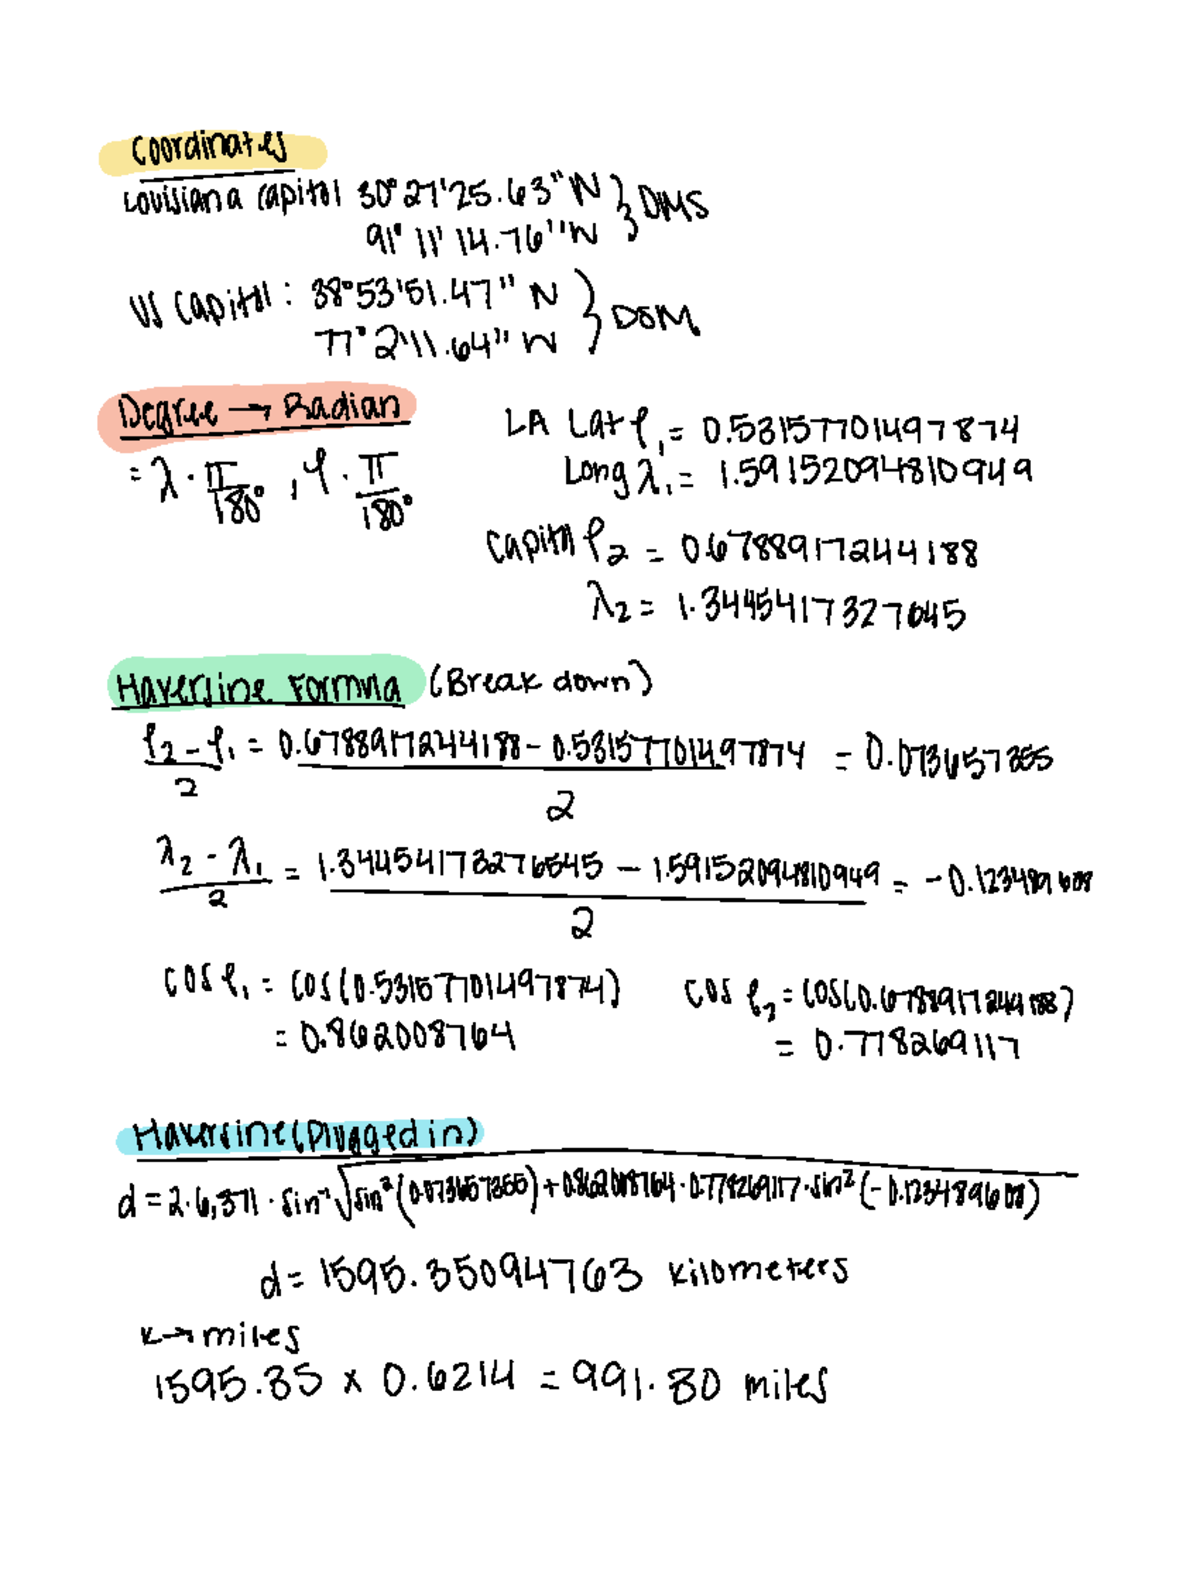 Coordinates
Louisiana Capitol 30°27'25.63"N } DMS
91° 11' 14.76"W
US Capitol: 38°53'51.47" N } DSM
77° 2'11.64" W
Degree → Radian
= λ · π/180°, φ · π/180°
LA Lat φ₁ = 0.531577701497874
Long λ₁ = 1.59152094810949
Capitol φ₂ = 0.6788917244188
λ₂ = 1.3445417327645
Haversine Formula (Break down)
(φ₂ - φ₁)/2 = (0.6788917244188 - 0.531577701497874)/2 = 0.073657355
(λ₂ - λ₁)/2 = (1.34454173276545 - 1.59152094810949)/2 = -0.123489608
cos φ₁ = cos(0.531577701497874)
= 0.862008764
cos φ₂ = cos(0.6788917244188)
= 0.778269117
Haversine (Plugged in)
d = 2·6,371 · sin⁻¹√sin²(0.073657355) + 0.862008764 · 0.778269117 · sin²(-0.123489608)
d = 1595.35094763 kilometers
K → miles
1595.35 x 0.6214 = 991.30 miles